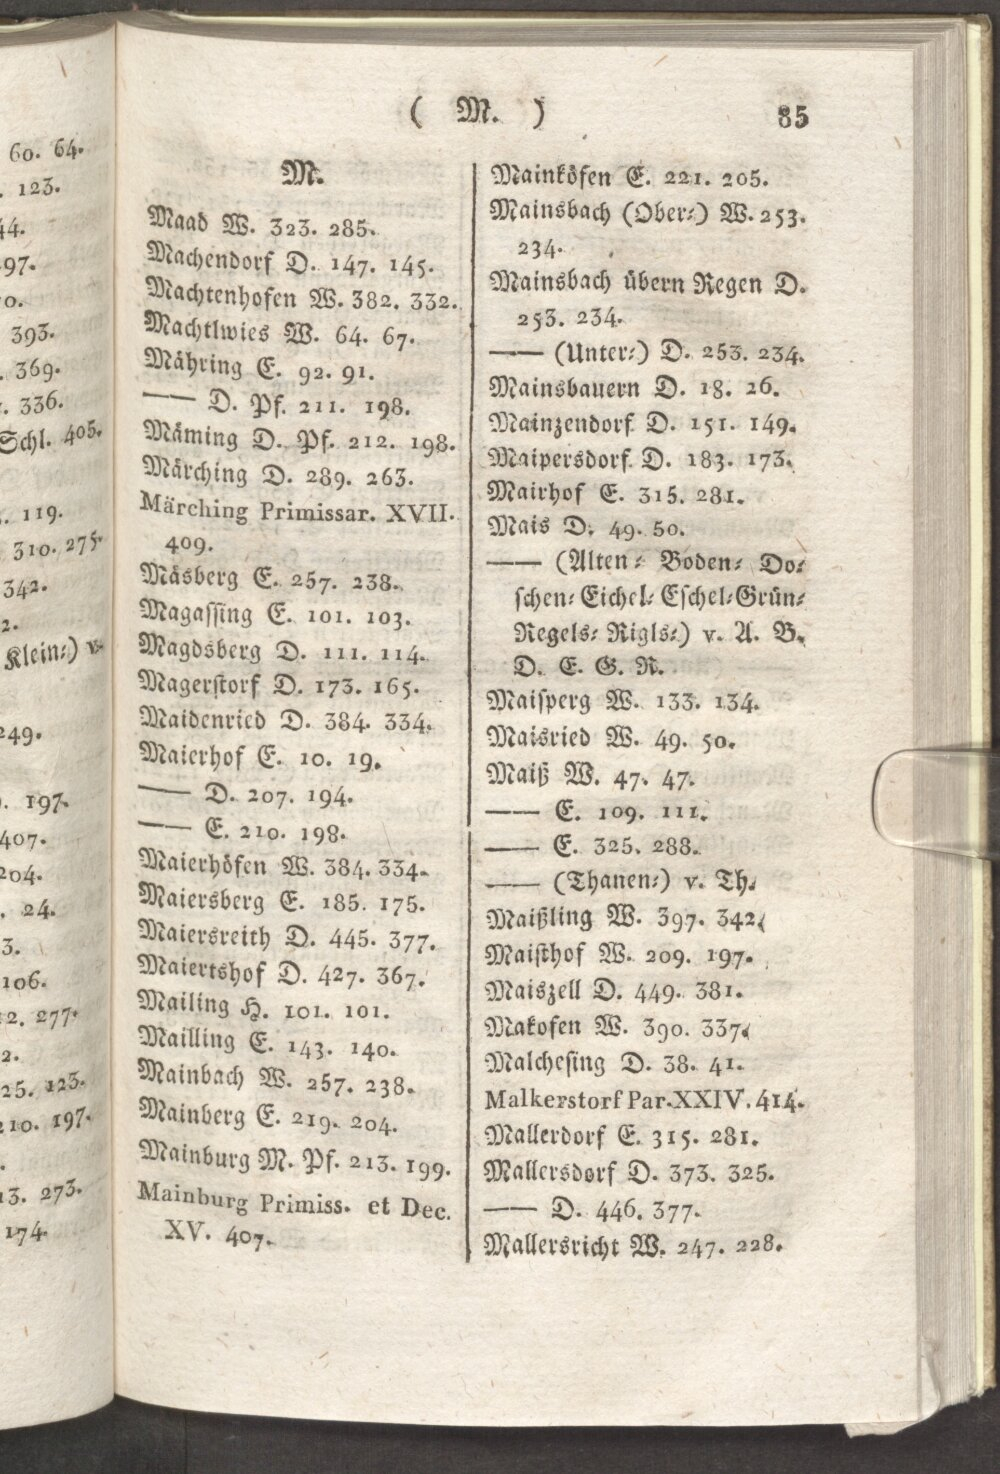 60. 64.
. 123.
44.
497.
0.
393.
. 369.
. 336.
Schl. 405.
. 119.
310. 275.
342.
2.
Klein⸗) v.
249.
. 197.
407.
204.
. 24.
3.
106.
2. 277.
2.
25. 123.
210. 197.
13. 273.
174.
( M. ) 85
M.
Maad W. 323. 285.
Machendorf D. 147. 145.
Machtenhofen W. 382. 332.
Machtlwies W. 64. 67.
Mähring E. 92. 91.
—— D. Pf. 211. 198.
Mäming D. Pf. 212. 198.
Märching D. 289. 263.
Märching Primissar. XVII.
409.
Mäsberg E. 257. 238.
Magaſſing E. 101. 103.
Magdsberg D. 111. 114.
Magerſtorf D. 173. 165.
Maidenried D. 384. 334.
Maierhof E. 10. 19.
—— D. 207. 194.
—— E. 210. 198.
Maierhöfen W. 384. 334.
Maiersberg E. 185. 175.
Maiersreith D. 445. 377.
Maiertshof D. 427. 367.
Mailing H. 101. 101.
Mailling E. 143. 140.
Mainbach W. 257. 238.
Mainberg E. 219. 204.
Mainburg M. Pf. 213. 199.
Mainburg Primiss. et Dec.
XV. 407.
Mainköfen E. 221. 205.
Mainsbach (Ober⸗) W. 253.
234.
Mainsbach übern Regen D.
253. 234.
—— (Unter⸗) D. 253. 234.
Mainsbauern D. 18. 26.
Mainzendorf D. 151. 149.
Maipersdorf D. 183. 173.
Mairhof E. 315. 281.
Mais D. 49. 50.
—— (Alten⸗ Boden⸗ Do⸗
ſchen⸗ Eichel⸗ Eſchel⸗Grün⸗
Regels⸗ Rigls⸗) v. A. B.
D. E. G. R.
Maiſperg W. 133. 134.
Maisried W. 49. 50.
Maiß W. 47. 47.
—— E. 109. 111.
—— E. 325. 288.
—— (Thanen⸗) v. Th.
Maißling W. 397. 342.
Maiſthof W. 209. 197.
Maiszell D. 449. 381.
Makofen W. 390. 337.
Malcheſing D. 38. 41.
Malkerstorf Par. XXIV. 414.
Mallerdorf E. 315. 281.
Mallersdorf D. 373. 325.
—— D. 446. 377.
Mallersricht W. 247. 228.